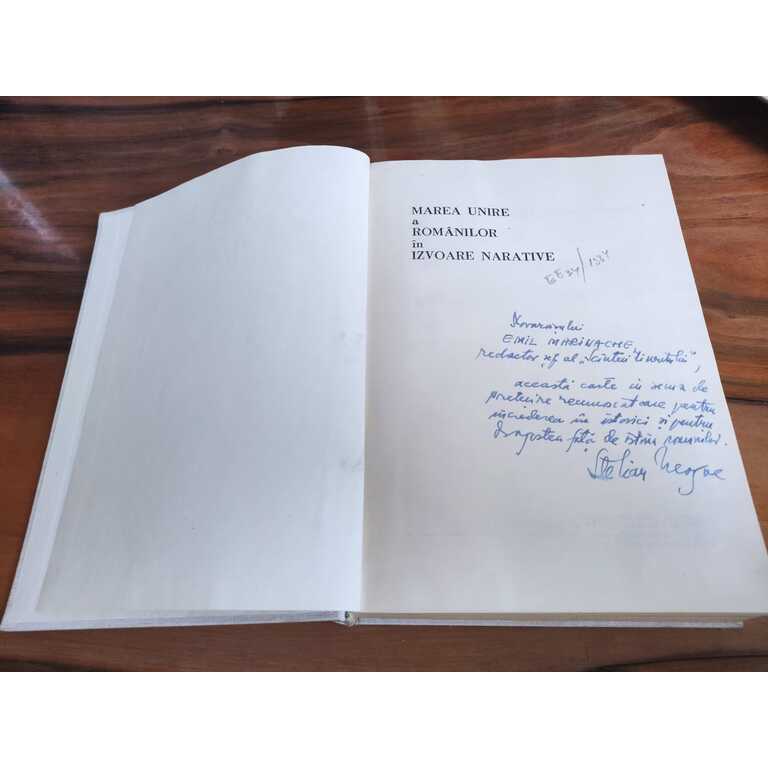 MAREA UNIRE
a
ROMÂNILOR
în
IZVOARE NARATIVE
Tovarășului
EMIL MARINACHE,
redactor șef al „Scînteii tineretului”,
această carte în semn de
prețuire recunoscătoare pentru
încrederea în istorici și pentru
dragostea față de istoria românilor.
Stelian Neagoe